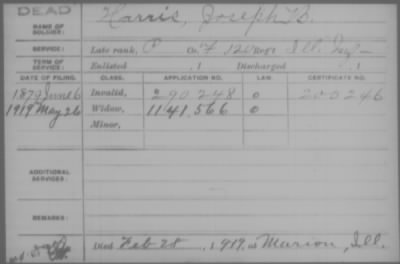 DEAD
NAME OF SOLDIER: Harris, Joseph B.
SERVICE: Late rank, P Co. F, 120 Reg't Ill. Inf.
TERM OF SERVICE: Enlisted , 1 Discharged , 1
DATE OF FILING. CLASS. APPLICATION NO. LAW. CERTIFICATE NO.
1879 June 6 Invalid, 290,248 o 200246
1919 May 26 Widow, 1141,566 o
Minor,
ADDITIONAL SERVICES:
REMARKS:
Died Feb 28, 1919, at Marion, Ill.